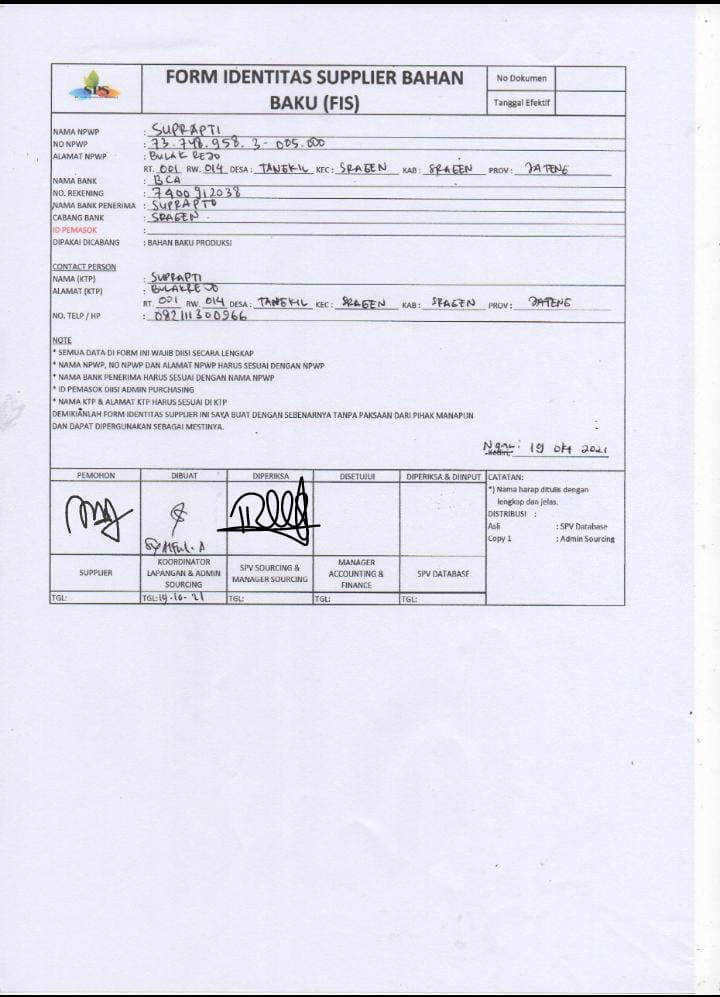 SPS
FORM IDENTITAS SUPPLIER BAHAN BAKU (FIS)
No Dokumen
Tanggal Efektif
NAMA NPWP : SUPRAPTI
NO NPWP : 73.748.958.3-005.000
ALAMAT NPWP : BULAK REJO
RT. 001 RW. 014 DESA: TANGKIL KEC: SRAGEN KAB: SRAGEN PROV: JATENG
NAMA BANK : BCA
NO. REKENING : 7900912038
NAMA BANK PENERIMA : SUPRAPTO
CABANG BANK : SRAGEN.
ID PEMASOK :
DIPAKAI DICABANG : BAHAN BAKU PRODUKSI
CONTACT PERSON
NAMA (KTP) : SUPRAPTI
ALAMAT (KTP) : BULAKREJO
RT. 001 RW. 014 DESA: TANGKIL KEC: SRAGEN KAB: SRAGEN PROV: JATENG
NO. TELP / HP : 082111300966
NOTE
* SEMUA DATA DI FORM INI WAJIB DIISI SECARA LENGKAP
* NAMA NPWP, NO NPWP DAN ALAMAT NPWP HARUS SESUAI DENGAN NPWP
* NAMA BANK PENERIMA HARUS SESUAI DENGAN NAMA NPWP
* ID PEMASOK DIISI ADMIN PURCHASING
* NAMA KTP & ALAMAT KTP HARUS SESUAI DI KTP
DEMIKIANLAH FORM IDENTITAS SUPPLIER INI SAYA BUAT DENGAN SEBENARNYA TANPA PAKSAAN DARI PIHAK MANAPUN
DAN DAPAT DIPERGUNAKAN SEBAGAI MESTINYA.
19 Okt 2021
PEMOHON DIBUAT DIPERIKSA DISETUJUI DIPERIKSA & DIINPUT
CATATAN:
*) Nama harap ditulis dengan
lengkap dan jelas.
DISTRIBUSI :
Asli : SPV Database
Copy 1 : Admin Sourcing
SUPPLIER
KOORDINATOR LAPANGAN & ADMIN SOURCING
SPV SOURCING & MANAGER SOURCING
MANAGER ACCOUNTING & FINANCE
SPV DATABASE
TGL: TGL: 19-10-21 TGL: TGL: TGL: